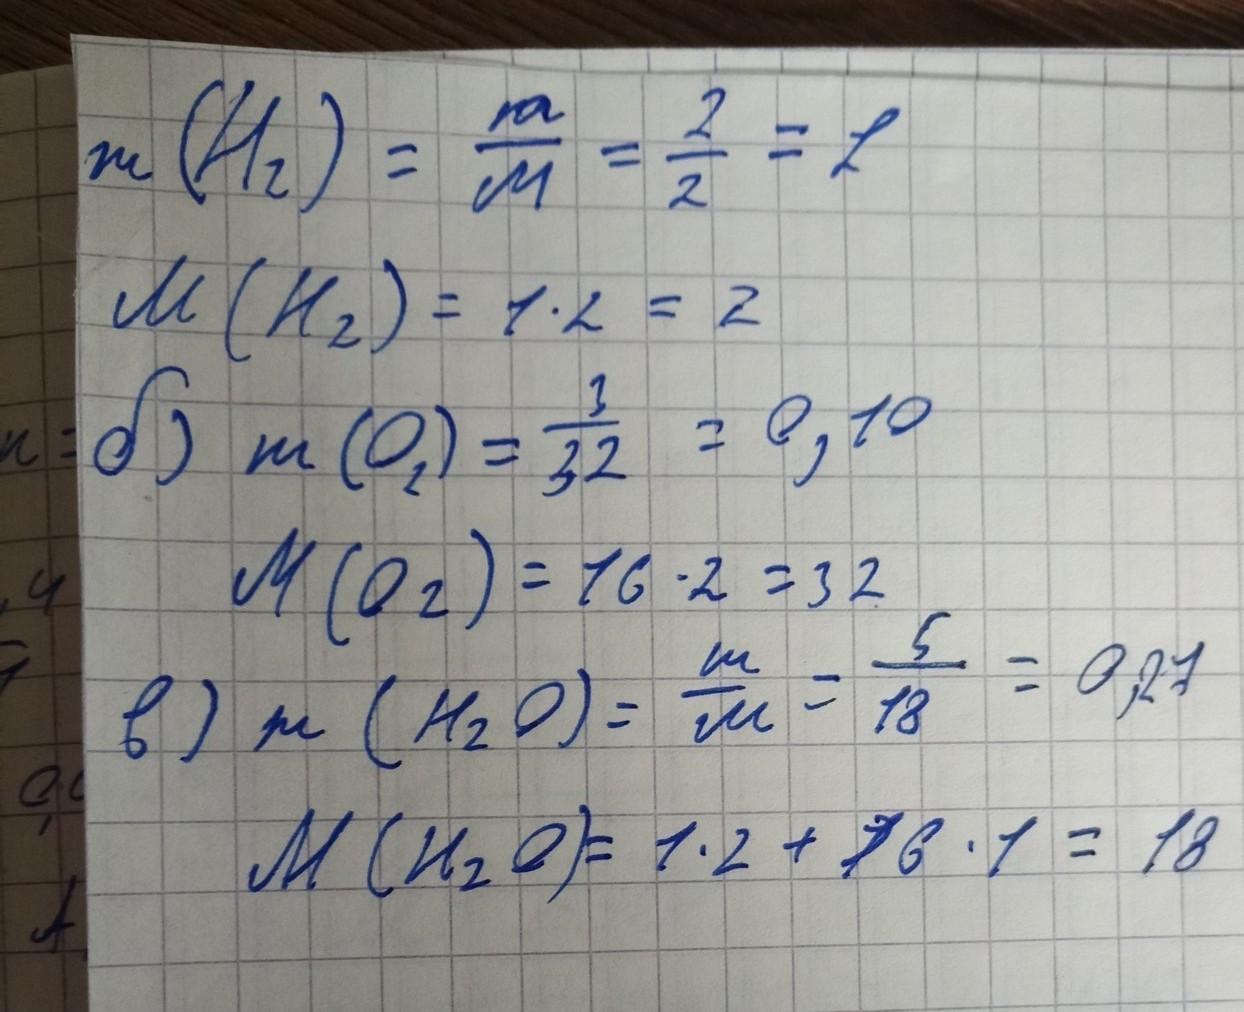 m(H₂) = m/M = 2/2 = 1
M(H₂) = 1·2 = 2
б) m(O₂) = 3/32 = 0,10
M(O₂) = 16·2 = 32
в) m(H₂O) = m/M = 5/18 = 0,27
M(H₂O) = 1·2 + 16·1 = 18